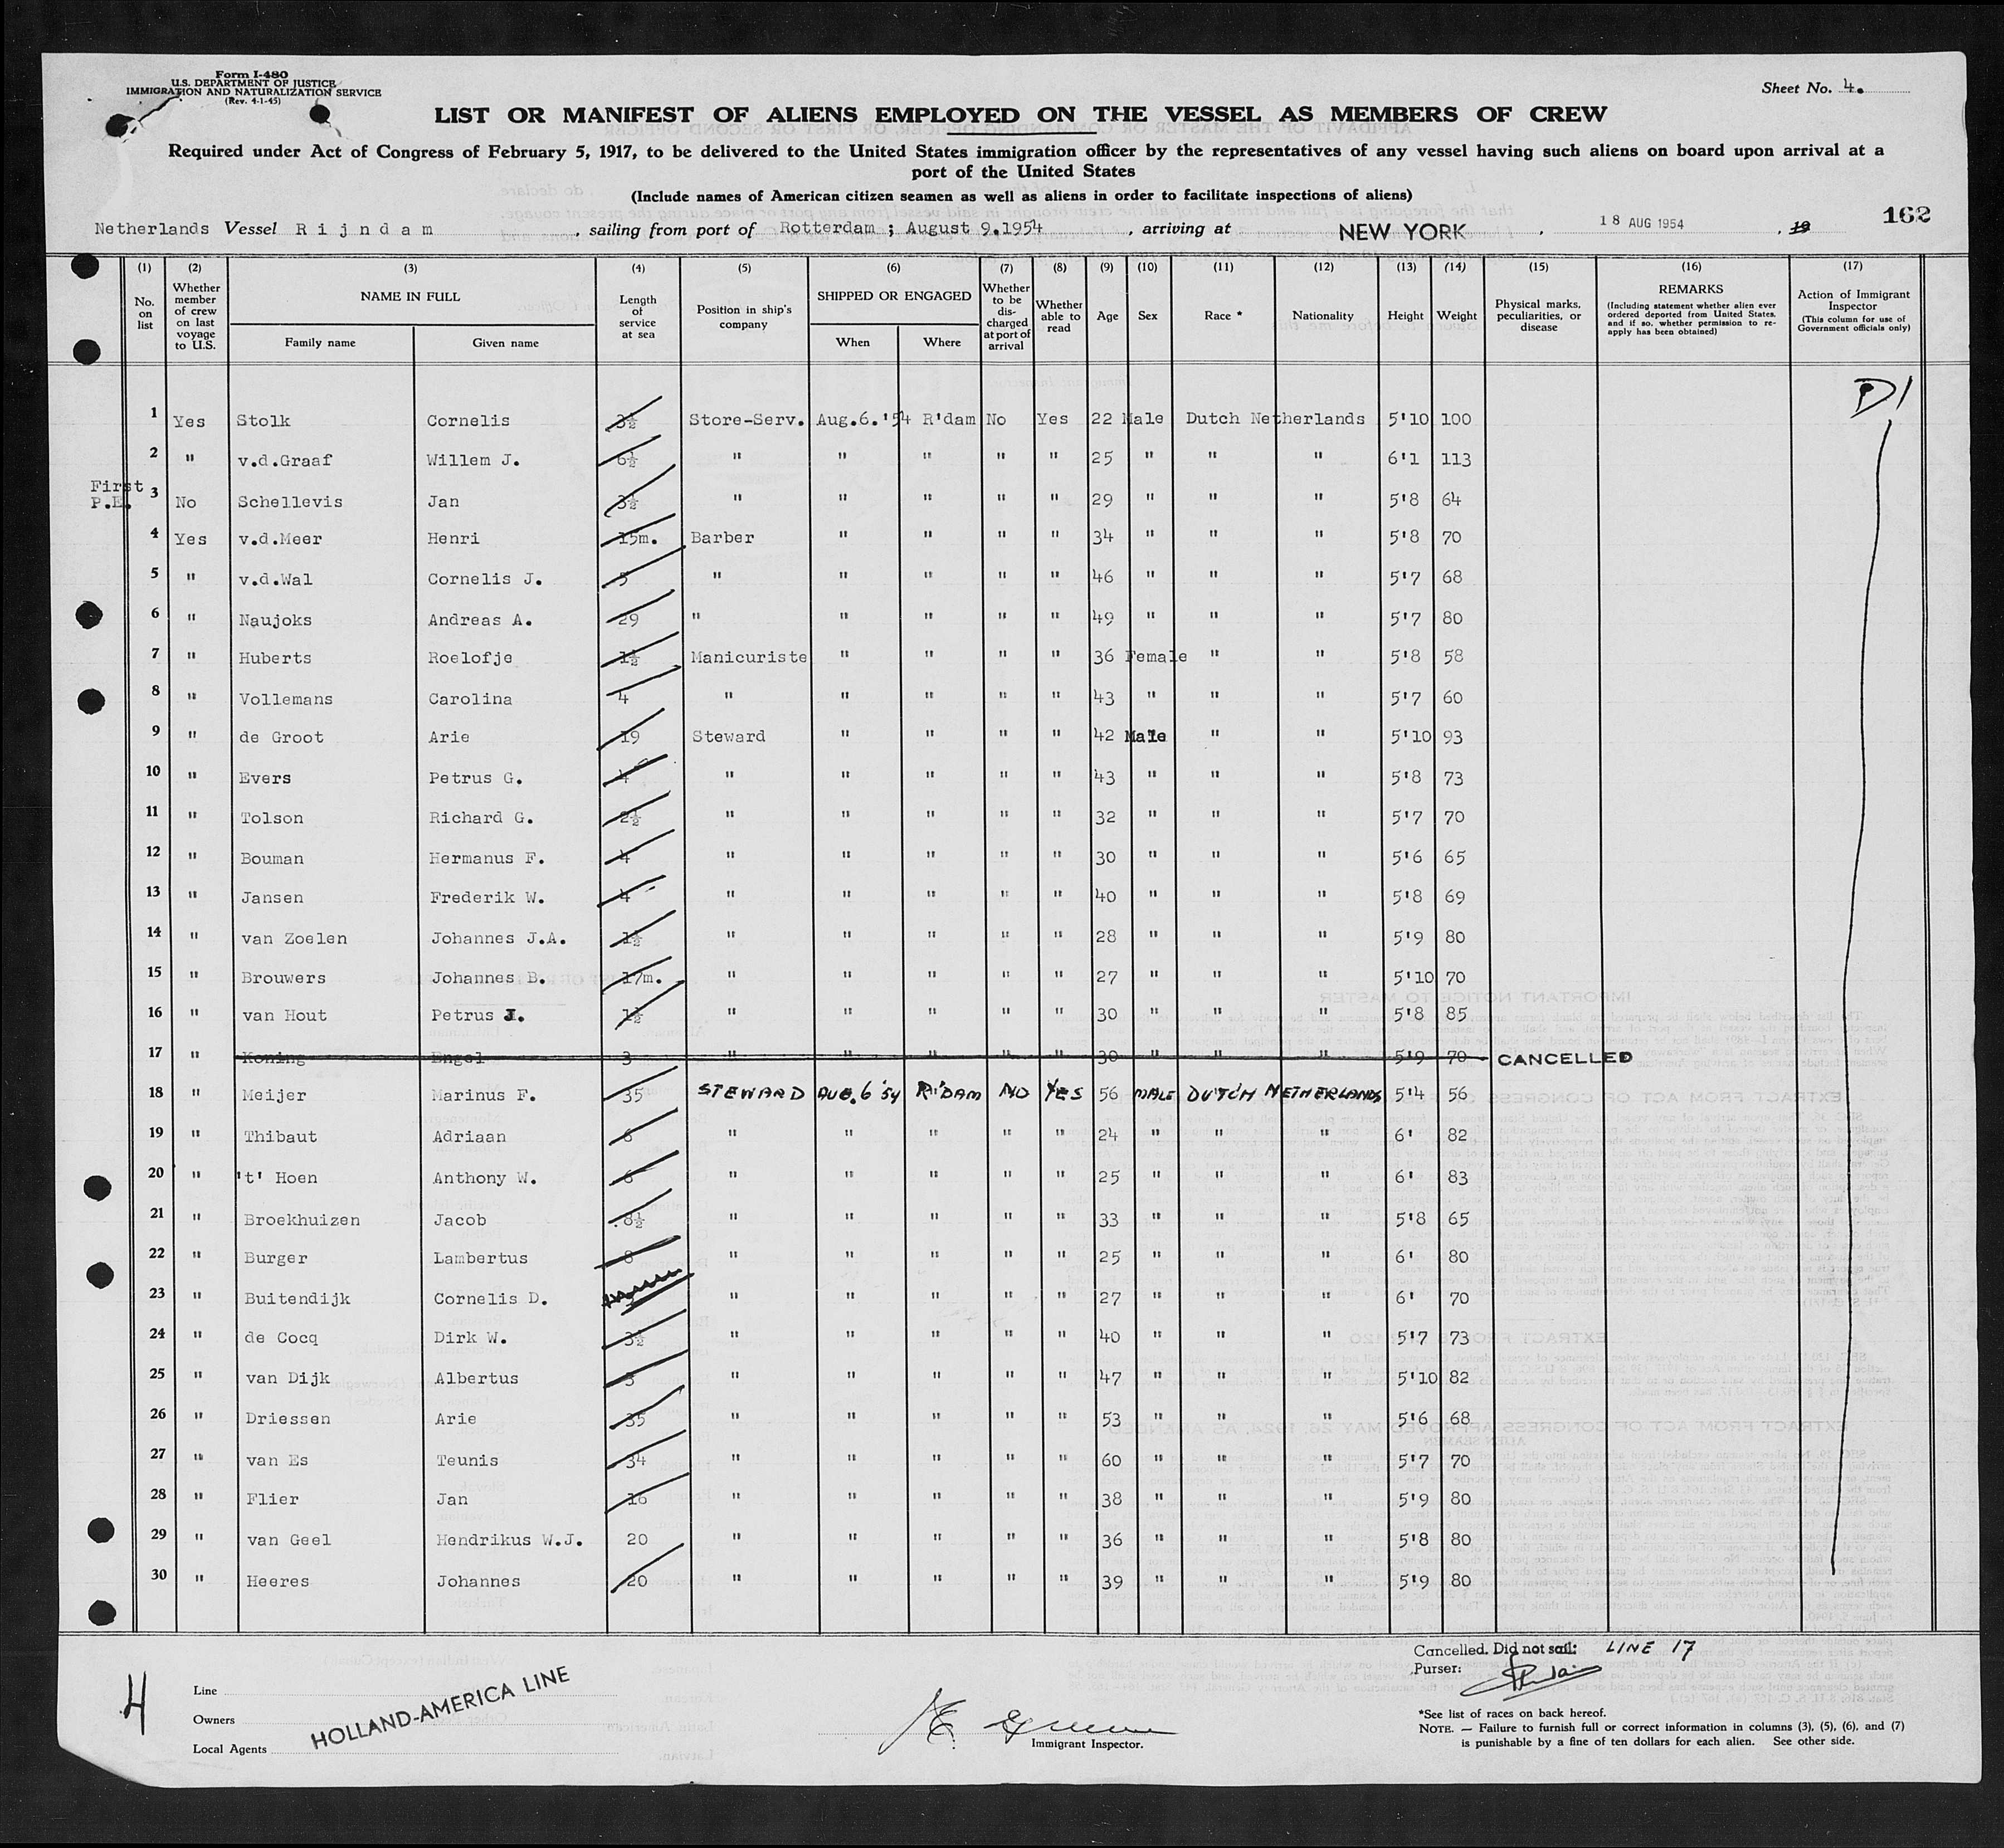 Form I-480
U.S. DEPARTMENT OF JUSTICE
IMMIGRATION AND NATURALIZATION SERVICE
(Rev. 4-1-45)
Sheet No. 4.
LIST OR MANIFEST OF ALIENS EMPLOYED ON THE VESSEL AS MEMBERS OF CREW
Required under Act of Congress of February 5, 1917, to be delivered to the United States immigration officer by the representatives of any vessel having such aliens on board upon arrival at a
port of the United States
(Include names of American citizen seamen as well as aliens in order to facilitate inspections of aliens)
Netherlands Vessel Rijndam, sailing from port of Rotterdam ; August 9.1954, arriving at NEW YORK, 18 AUG 1954, 19 162
(1) (2) (3) (4) (5) (6) (7) (8) (9) (10) (11) (12) (13) (14) (15) (16) (17)
No. on list Whether member of crew on last voyage to U.S. NAME IN FULL Family name Given name Length of service at sea Position in ship's company SHIPPED OR ENGAGED When Where Whether to be discharged at port of arrival Whether able to read Age Sex Race * Nationality Height Weight Physical marks, peculiarities, or disease REMARKS (Including statement whether alien ever ordered deported from United States, and if so, whether permission to re-apply has been obtained) Action of Immigrant Inspector (This column for use of Government officials only)
D1
1 Yes Stolk Cornelis 3½ Store-Serv. Aug.6.'54 R'dam No Yes 22 Male Dutch Netherlands 5'10 100
2 " v.d.Graaf Willem J. 6½ " " " " " 25 " " " 6'1 113
First P.E. 3 No Schellevis Jan 3½ " " " " " 29 " " " 5'8 64
4 Yes v.d.Meer Henri 15m. Barber " " " " 34 " " " 5'8 70
5 " v.d.Wal Cornelis J. 5 " " " " " 46 " " " 5'7 68
6 " Naujoks Andreas A. 29 " " " " " 49 " " " 5'7 80
7 " Huberts Roelofje 1½ Manicuriste " " " " 36 Female " " 5'8 58
8 " Vollemans Carolina 4 " " " " " 43 " " " 5'7 60
9 " de Groot Arie 19 Steward " " " " 42 Male " " 5'10 93
10 " Evers Petrus G. 4 " " " " " 43 " " " 5'8 73
11 " Tolson Richard G. 2½ " " " " " 32 " " " 5'7 70
12 " Bouman Hermanus F. 4 " " " " " 30 " " " 5'6 65
13 " Jansen Frederik W. 4 " " " " " 40 " " " 5'8 69
14 " van Zoelen Johannes J.A. 1½ " " " " " 28 " " " 5'9 80
15 " Brouwers Johannes B. 17m. " " " " " 27 " " " 5'10 70
16 " van Hout Petrus J. 1½ " " " " " 30 " " " 5'8 85
17 " Koning Engel 3 " " " " " 30 " " " 5'9 70 CANCELLED
18 " Meijer Marinus F. 35 STEWARD AUG. 6 '54 R'DAM NO YES 56 MALE DUTCH NETHERLANDS 5'4 56
19 " Thibaut Adriaan 6 " " " " " 24 " " " 6' 82
20 " 't' Hoen Anthony W. 6 " " " " " 25 " " " 6' 83
21 " Broekhuizen Jacob 8½ " " " " " 33 " " " 5'8 65
22 " Burger Lambertus 8 " " " " " 25 " " " 6' 80
23 " Buitendijk Cornelis D. " " " " " 27 " " " 6' 70
24 " de Cocq Dirk W. 3½ " " " " " 40 " " " 5'7 73
25 " van Dijk Albertus 3 " " " " " 47 " " " 5'10 82
26 " Driessen Arie 35 " " " " " 53 " " " 5'6 68
27 " van Es Teunis 34 " " " " " 60 " " " 5'7 70
28 " Flier Jan 16 " " " " " 38 " " " 5'9 80
29 " van Geel Hendrikus W.J. 20 " " " " " 36 " " " 5'8 80
30 " Heeres Johannes 20 " " " " " 39 " " " 5'9 80
Cancelled. Did not sail: LINE 17
Purser:
4
Line
Owners
Local Agents
HOLLAND-AMERICA LINE
Immigrant Inspector.
*See list of races on back hereof.
NOTE. — Failure to furnish full or correct information in columns (3), (5), (6), and (7)
is punishable by a fine of ten dollars for each alien. See other side.